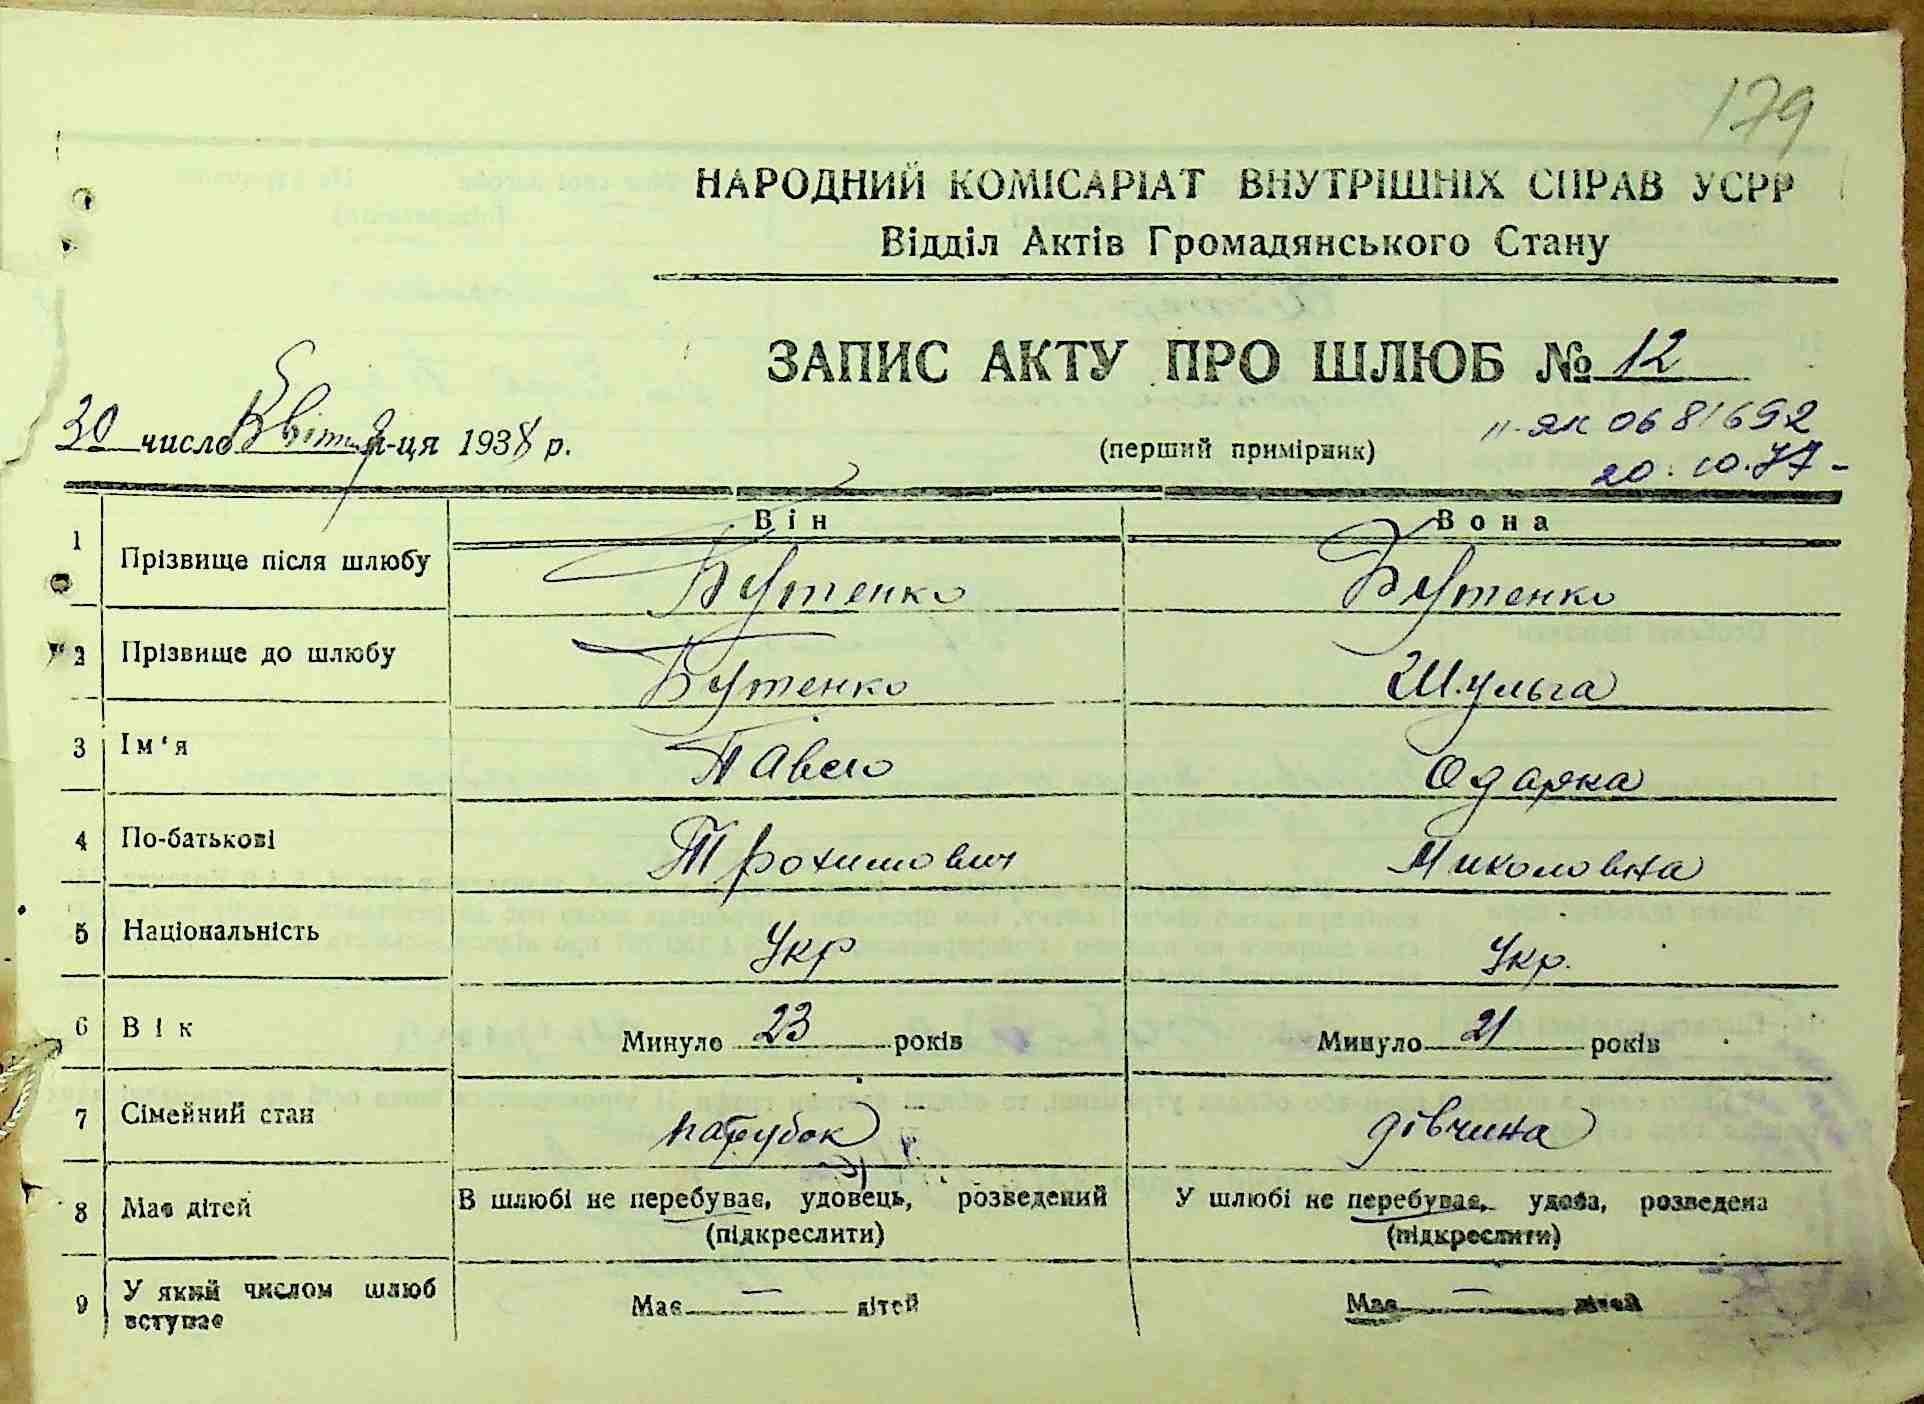 179
НАРОДНИЙ КОМІСАРІАТ ВНУТРІШНІХ СПРАВ УСРР
Відділ Актів Громадянського Стану
ЗАПИС АКТУ ПРО ШЛЮБ № 12
30 число Квітня м-ця 1938 р.
(перший примірник)
II-ЯК 0681692
20.10.77-
Він Вона
1 Прізвище після шлюбу Бутенко Бутенко
2 Прізвище до шлюбу Бутенко Шульга
3 Ім‘я Павло Одарка
4 По-батькові Трохимович Миколовна
5 Національність Укр Укр.
6 Вік Минуло 23 років Минуло 21 років
7 Сімейний стан парубок дівчина
8 Має дітей В шлюбі не перебуває, удовець, розведений У шлюбі не перебуває, удова, розведена
(підкреслити) (підкреслити)
9 У який числом шлюб вступає Має — дітей Має — дітей